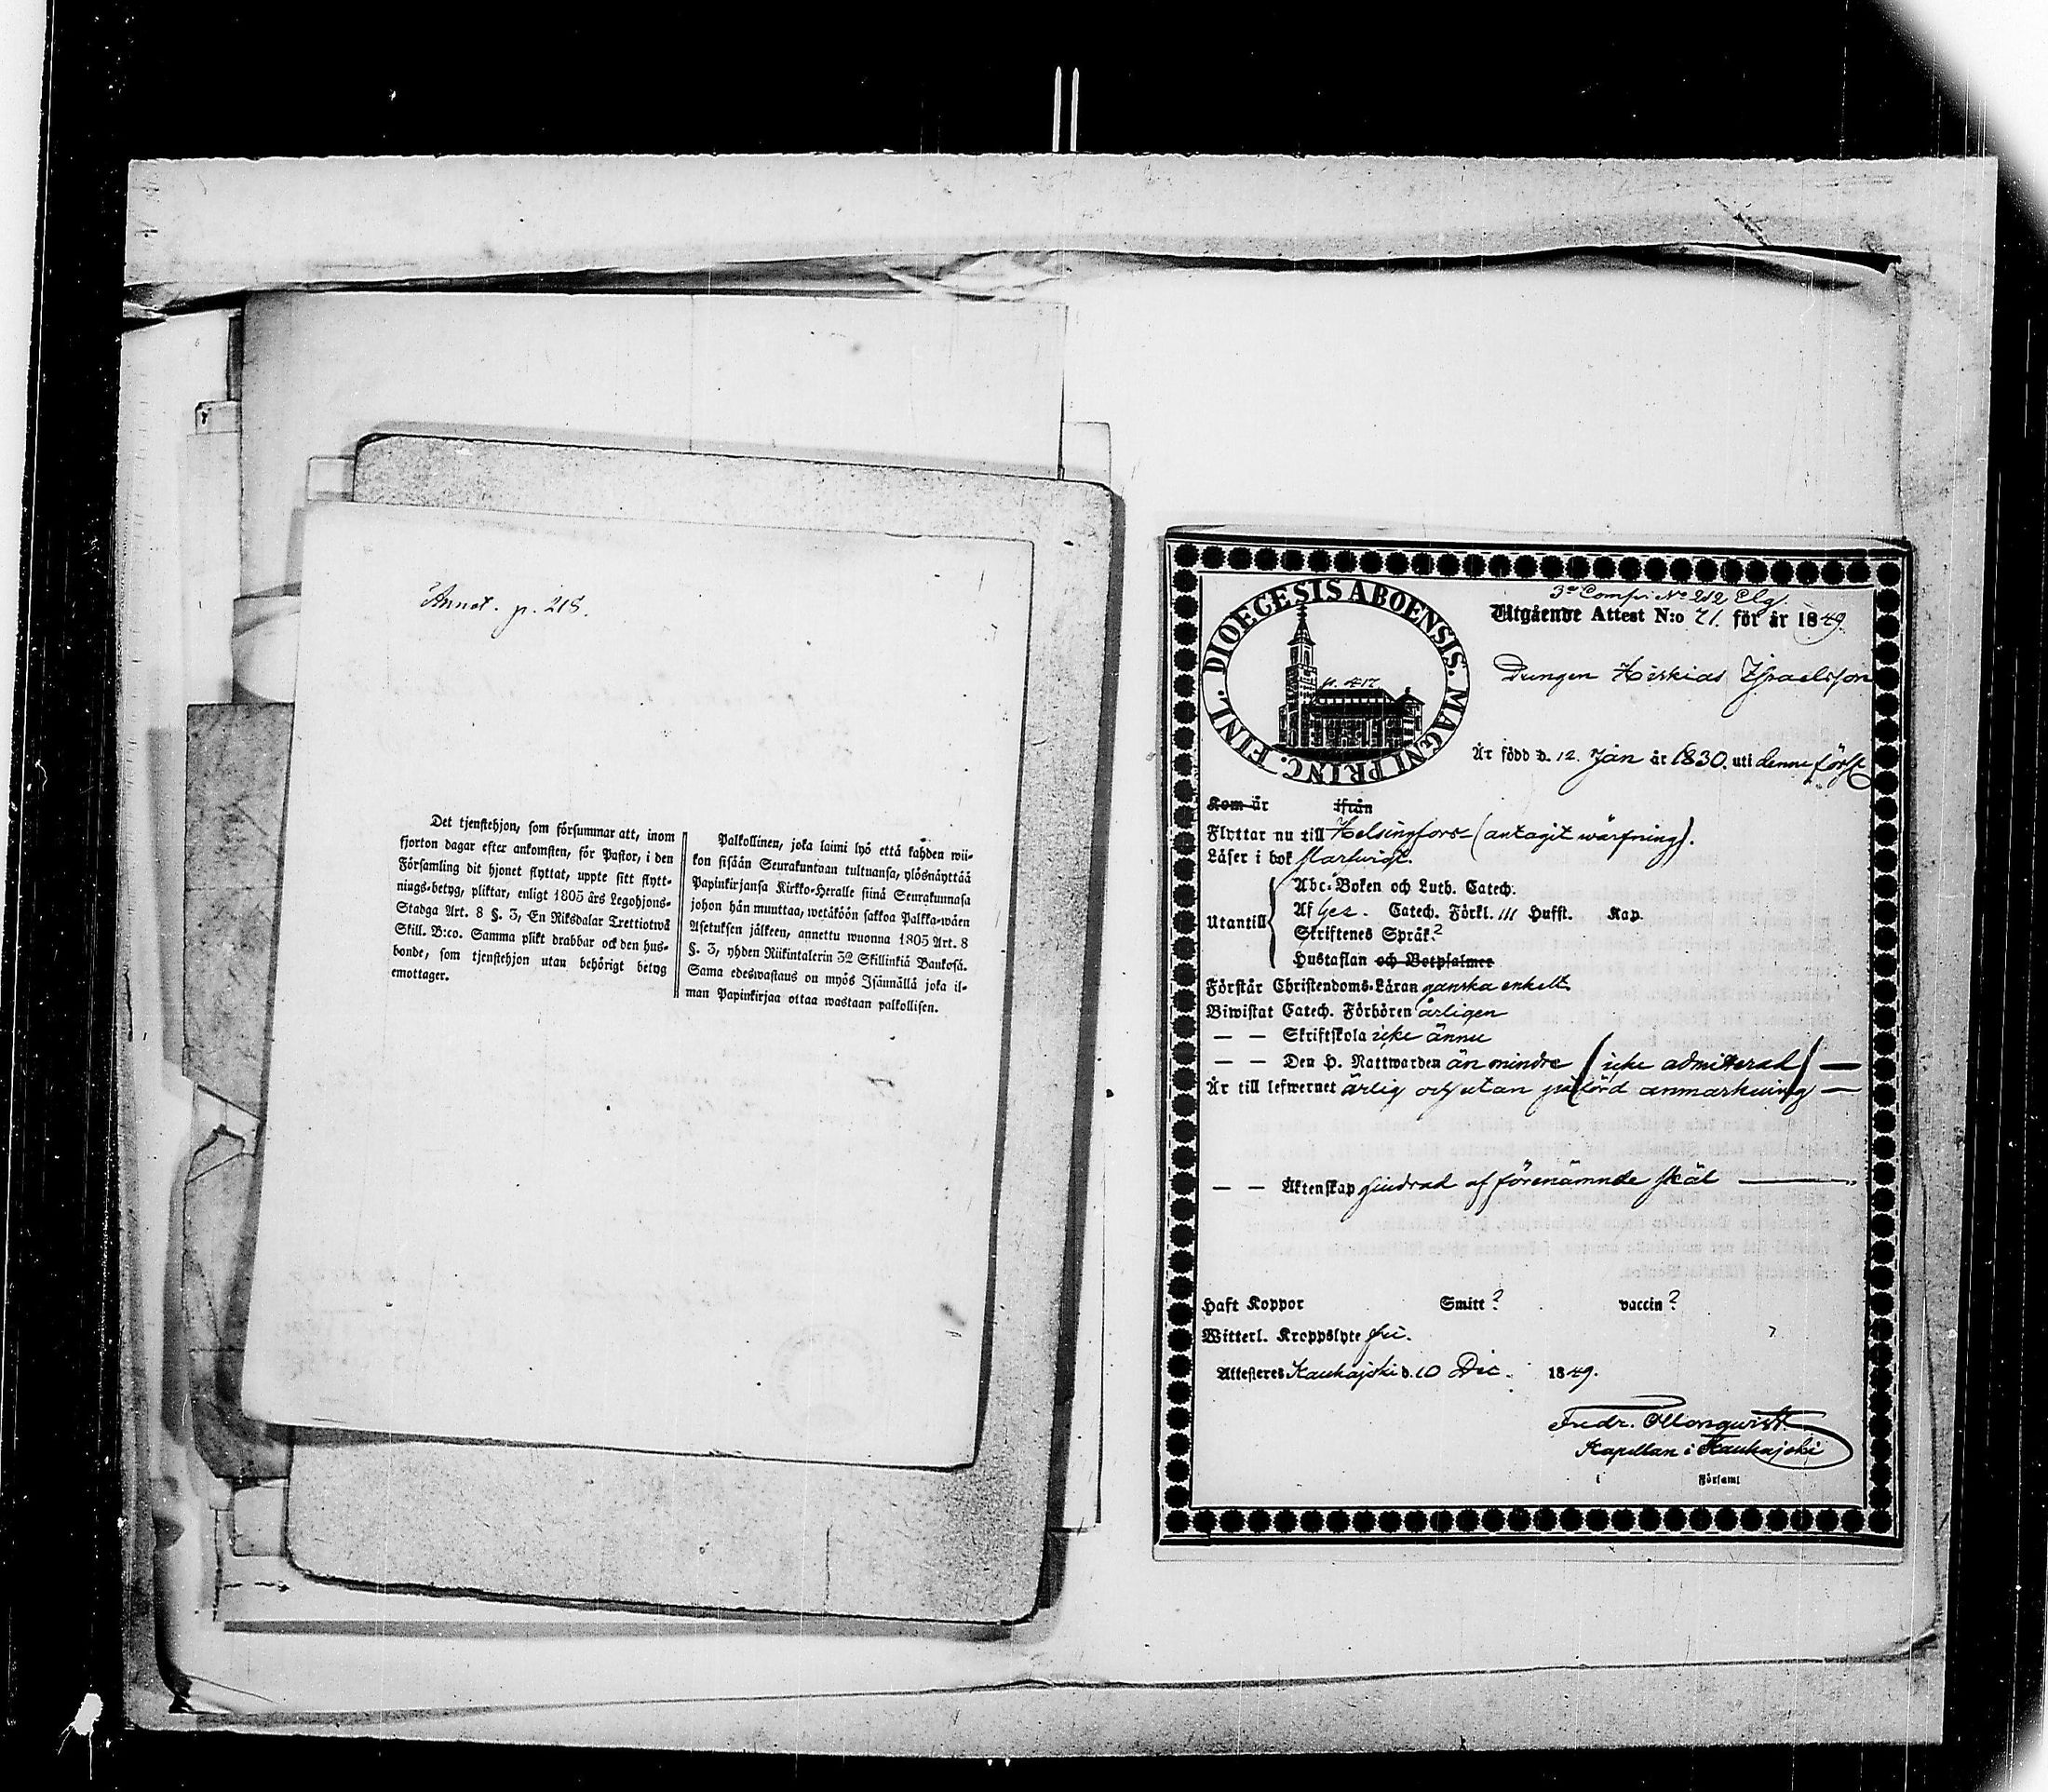 Annot. p. 218.
Det tjenstehjon, som försummar att, inom
fjorton dagar efter ankomsten, för Pastor, i den
Församling dit hjonet flyttat, uppte sitt flytt-
nings-betyg, pliktar, enligt 1805 års Legohjons-
Stadga Art. 8 §. 3, En Riksdalar Trettiotwå
Skill. B:co. Samma plikt drabbar ock den hus-
bonde, som tjenstehjon utan behörigt betyg
emottager.
Palkollinen, joka laimi lyö että kahden wii-
kon sisään Seurakuntaan tultuansa, ylösnäyttää
Papinkirjansa Kirkko-Heralle siinä Seurakunnasa
johon hän muuttaa, wetäköön sakkoa Palkka-wäen
Asetuksen jälkeen, annettu wuonna 1805 Art. 8
§. 3, yhden Riikintalerin 32 Skillinkiä Bankosa.
Sama edeswastaus on myös Isännällä joka il-
man Papinkirjaa ottaa wastaan palkollisen.
3e Comp: No 212 Elg.
Utgående Attest N:o 71. för år 1849.
DIOEGESIS ABOENSIS. MAGNI PRINC. FINL.
p. 417
Drengen Hiskias Israelsson
Är född d. 12. Jan år 1830. uti denne förs:
Kom år ifrån
Flyttar nu till Helsingfors (antagit wärfning).
Läser i bok
Utantill
Abc-Boken och Luth. Catech.
Af Ges. Catech. Förkl. III Hufst. Kap
Skriftenes Språk ?
Hustaflan och Botpsalmer
Förstår Christendoms-Läran ganska enkelt
Biwistat Catech. Förhören årligen
— — Skriftskola icke ännu
— — Den H. Nattwarden än mindre (icke admitterad) —
Är till lefwernet ärlig och utan påförd anmärkning —
— — Äktenskap hindrad af förenämnde skäl —
Haft Koppor Smitt ? vaccin ?
Witterl. Kroppslyte fri.
Attesteres Kauhajoki d. 10 Dec. 1849.
Fredr.
Kapellan i Kauhajoki
i Församl